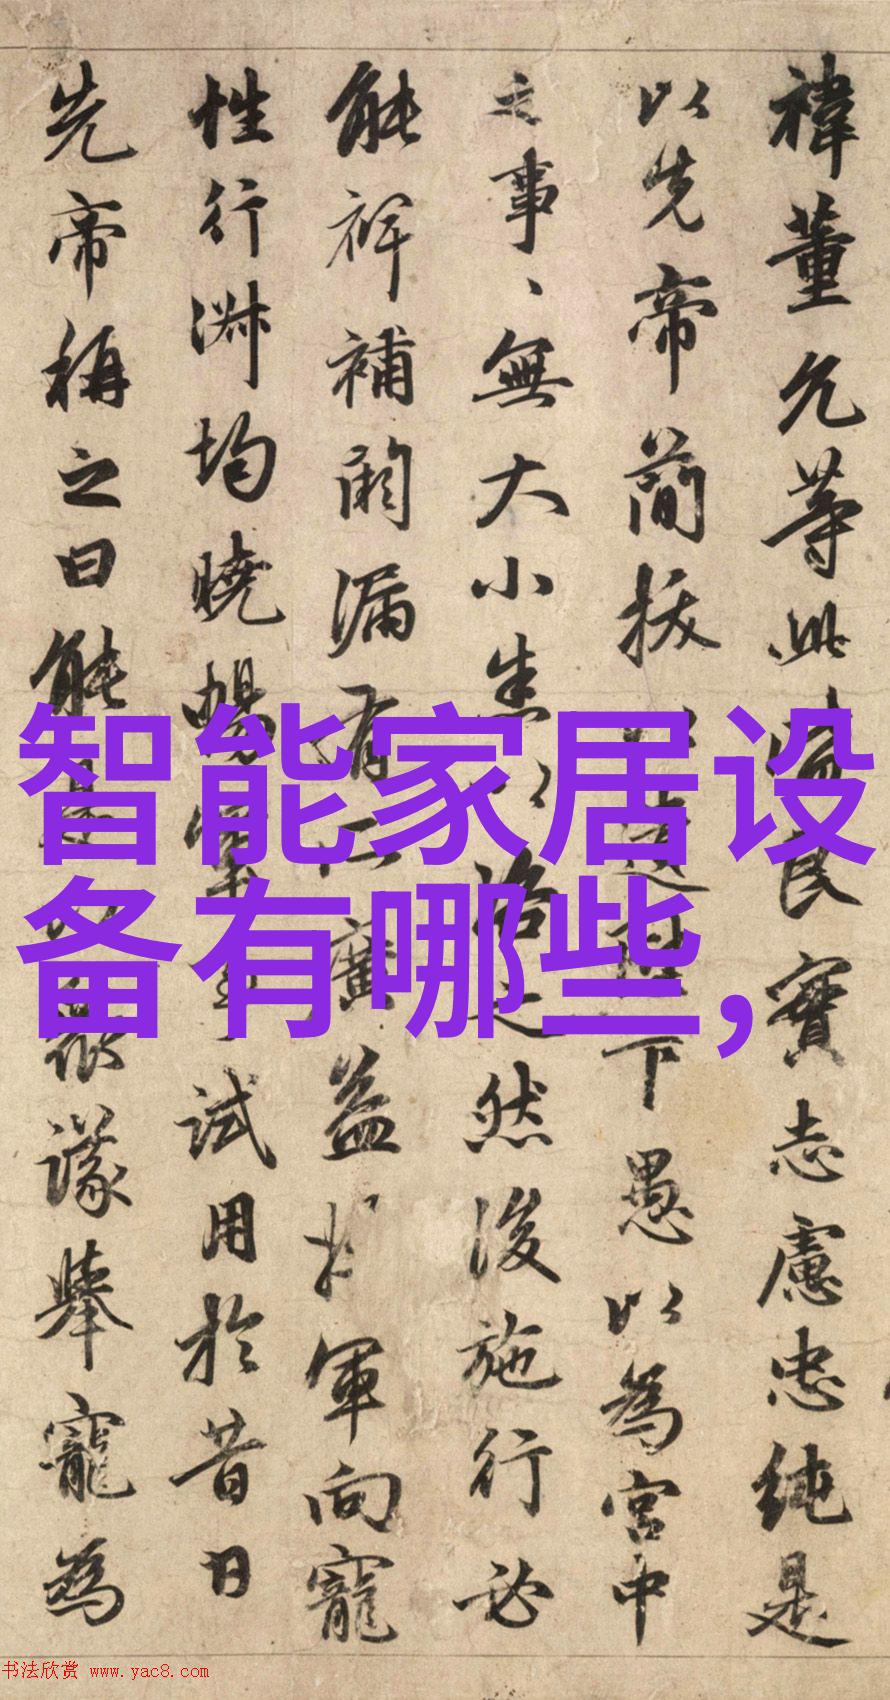 禕董允等此皆良實志慮忠純是
以先帝簡拔以遺陛下愚以為宮中
之事、無大小悉以咨之然後施行必
能裨補闕漏有所廣益將軍向寵
性行淑均曉暢軍事試用於昔日
先帝稱之曰能是以衆議舉寵為
智能家居设
备有哪些,
书法欣赏 www.yac8.com